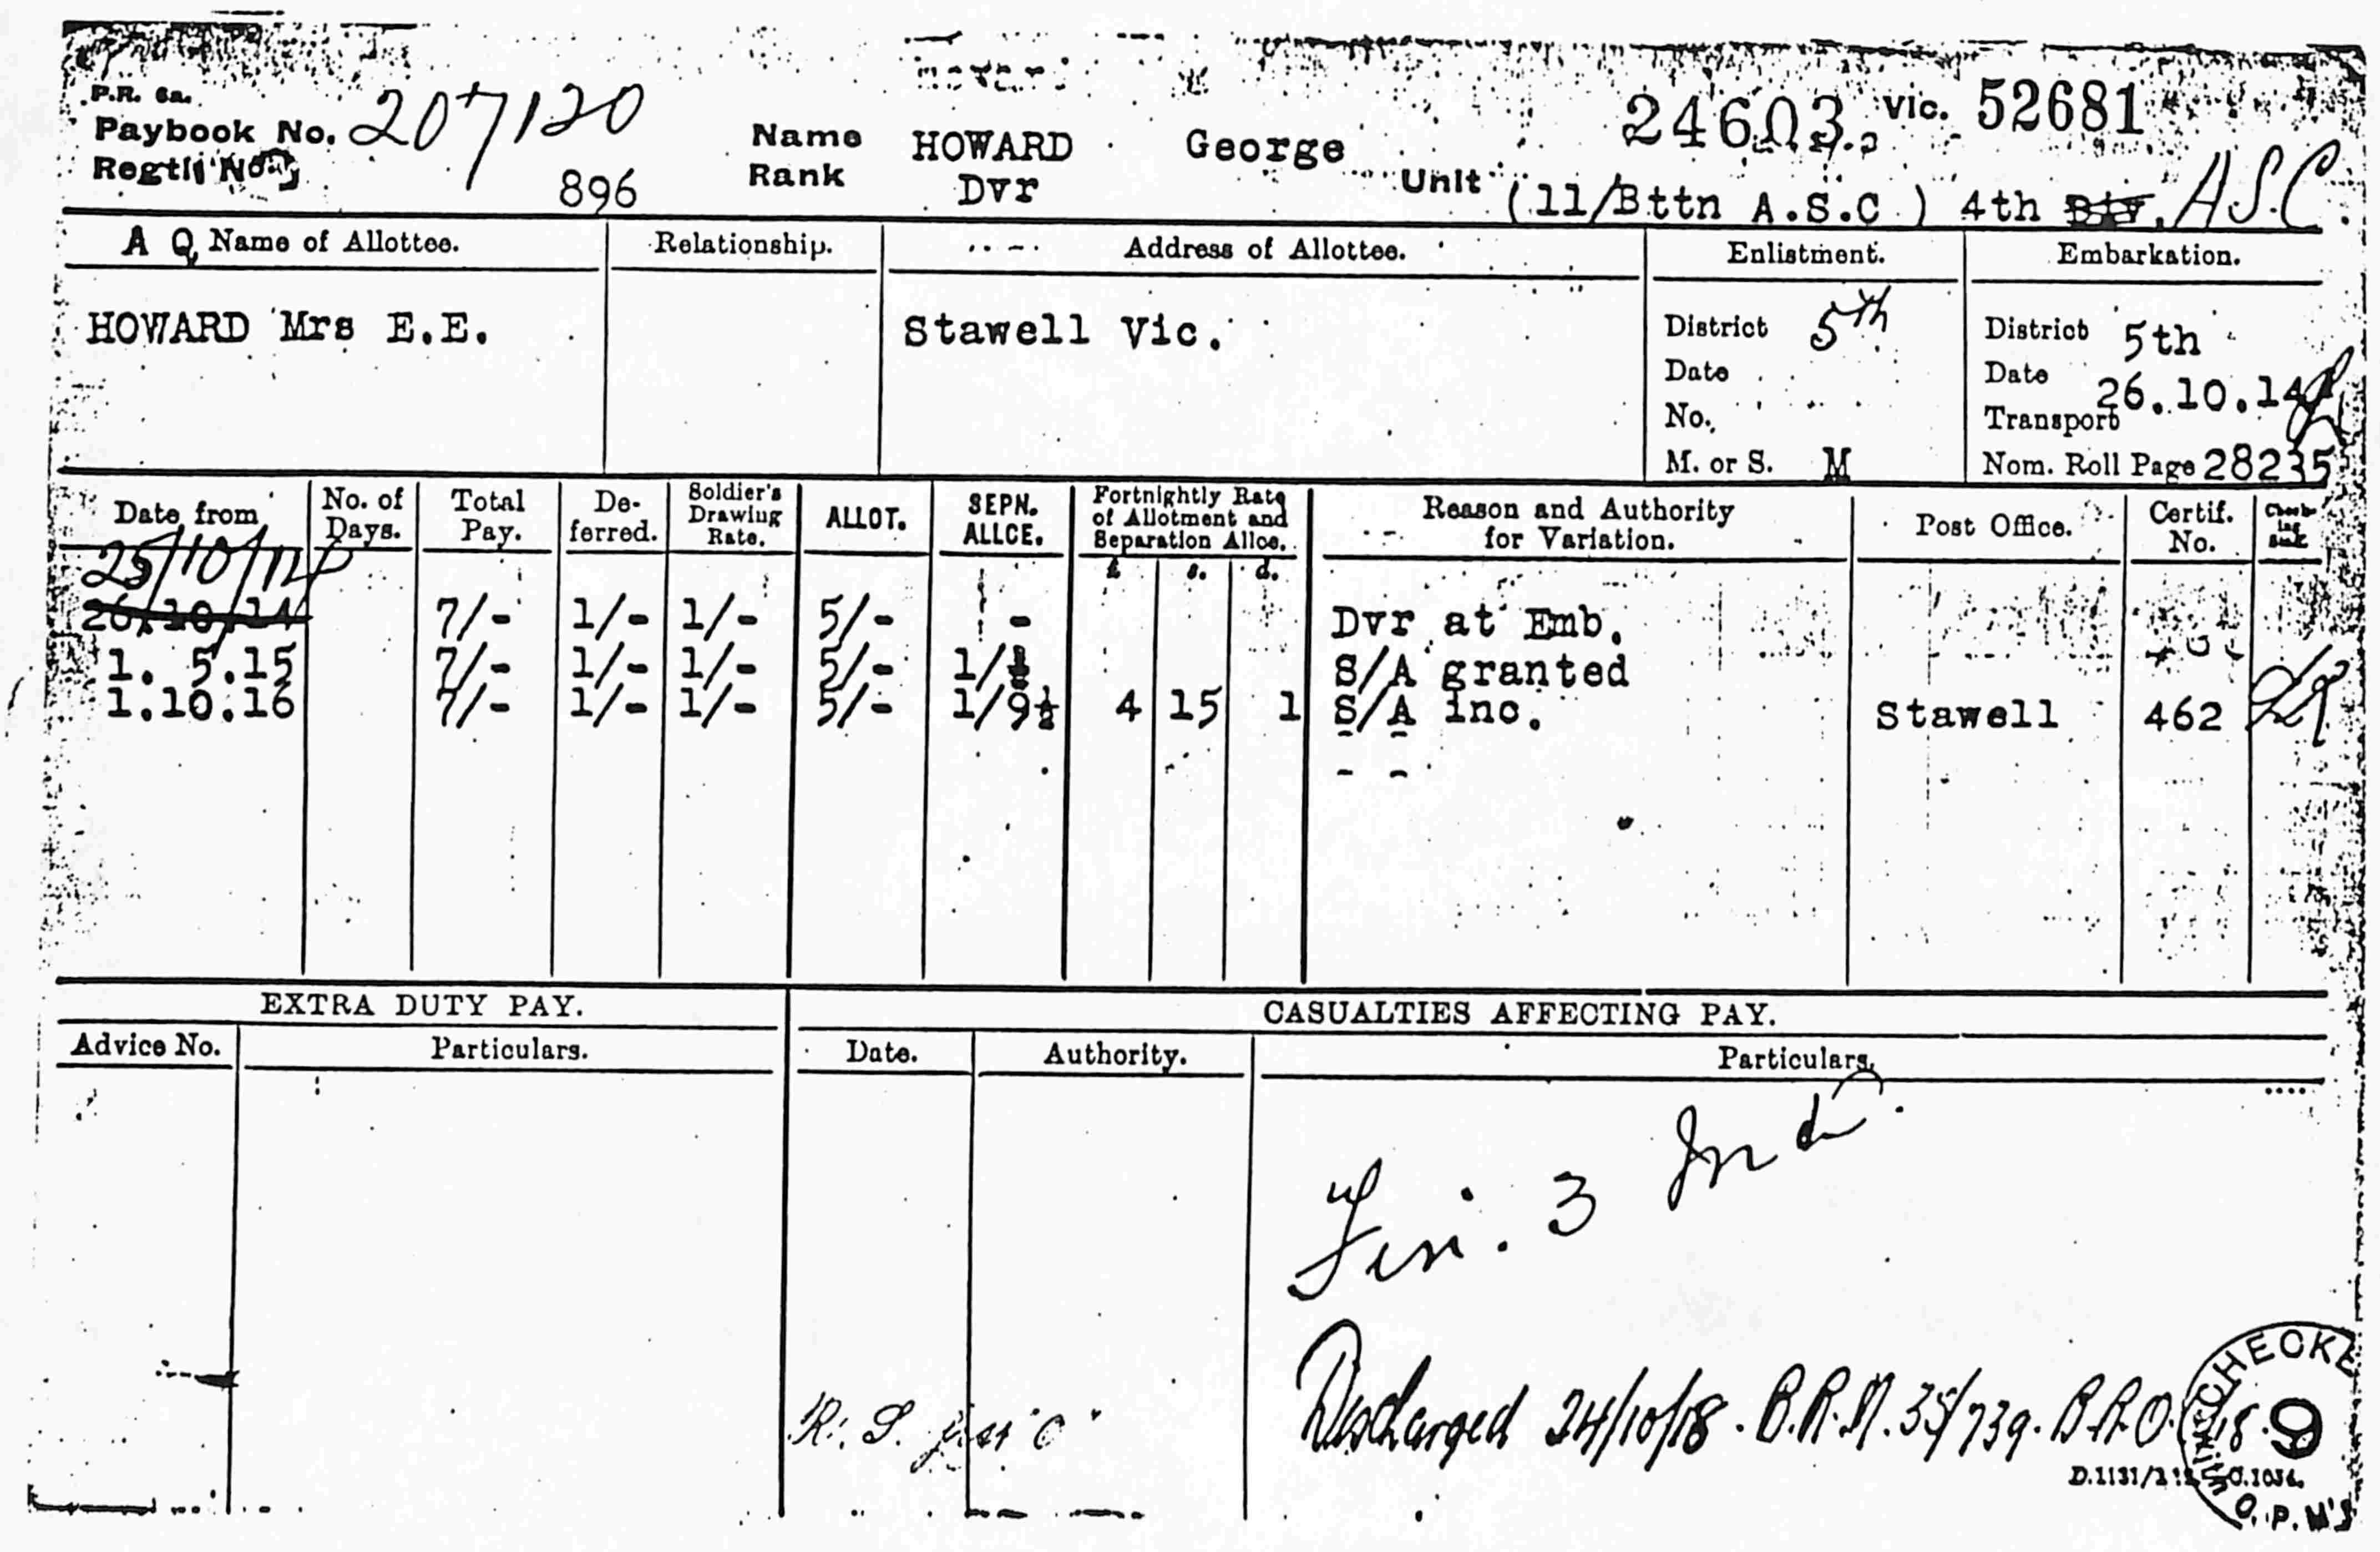 P.R. 6a.
Paybook No. 207120
Regtl No. 896
Name HOWARD George
Rank Dvr
24603. Vic. 52681
Unit (11/Bttn A.S.C.) 4th Btv. A.S.C.
A Q Name of Allottee. Relationship. Address of Allottee. Enlistment. Embarkation.
HOWARD Mrs E.E. Stawell Vic.
District 5th District 5th
Date Date 26.10.14
No. Transport
M. or S. M Nom. Roll Page 28235
Date from No. of Days. Total Pay. De-ferred. Soldier's Drawing Rate. ALLOT. SEPN. ALLCE. Fortnightly Rate of Allotment and Separation Allce. Reason and Authority for Variation. Post Office. Certif. No.
£ s. d.
25/10/14
26.10.14 7/- 1/- 1/- 5/- - Dvr at Emb.
1. 5.15 7/- 1/- 1/- 5/- 1/ S/A granted
1.10.16 7/- 1/- 1/- 5/- 1/9½ 4 15 1 S/A inc. Stawell 462
- -
- -
EXTRA DUTY PAY. CASUALTIES AFFECTING PAY.
Advice No. Particulars. Date. Authority. Particulars.
Fin. 3 Ind.
Discharged 24/10/18. B.R.M. 35/739. B.R.O. 18.
R. S.
CHECKE
9
D.1131/ C.1034.
O.P.M's